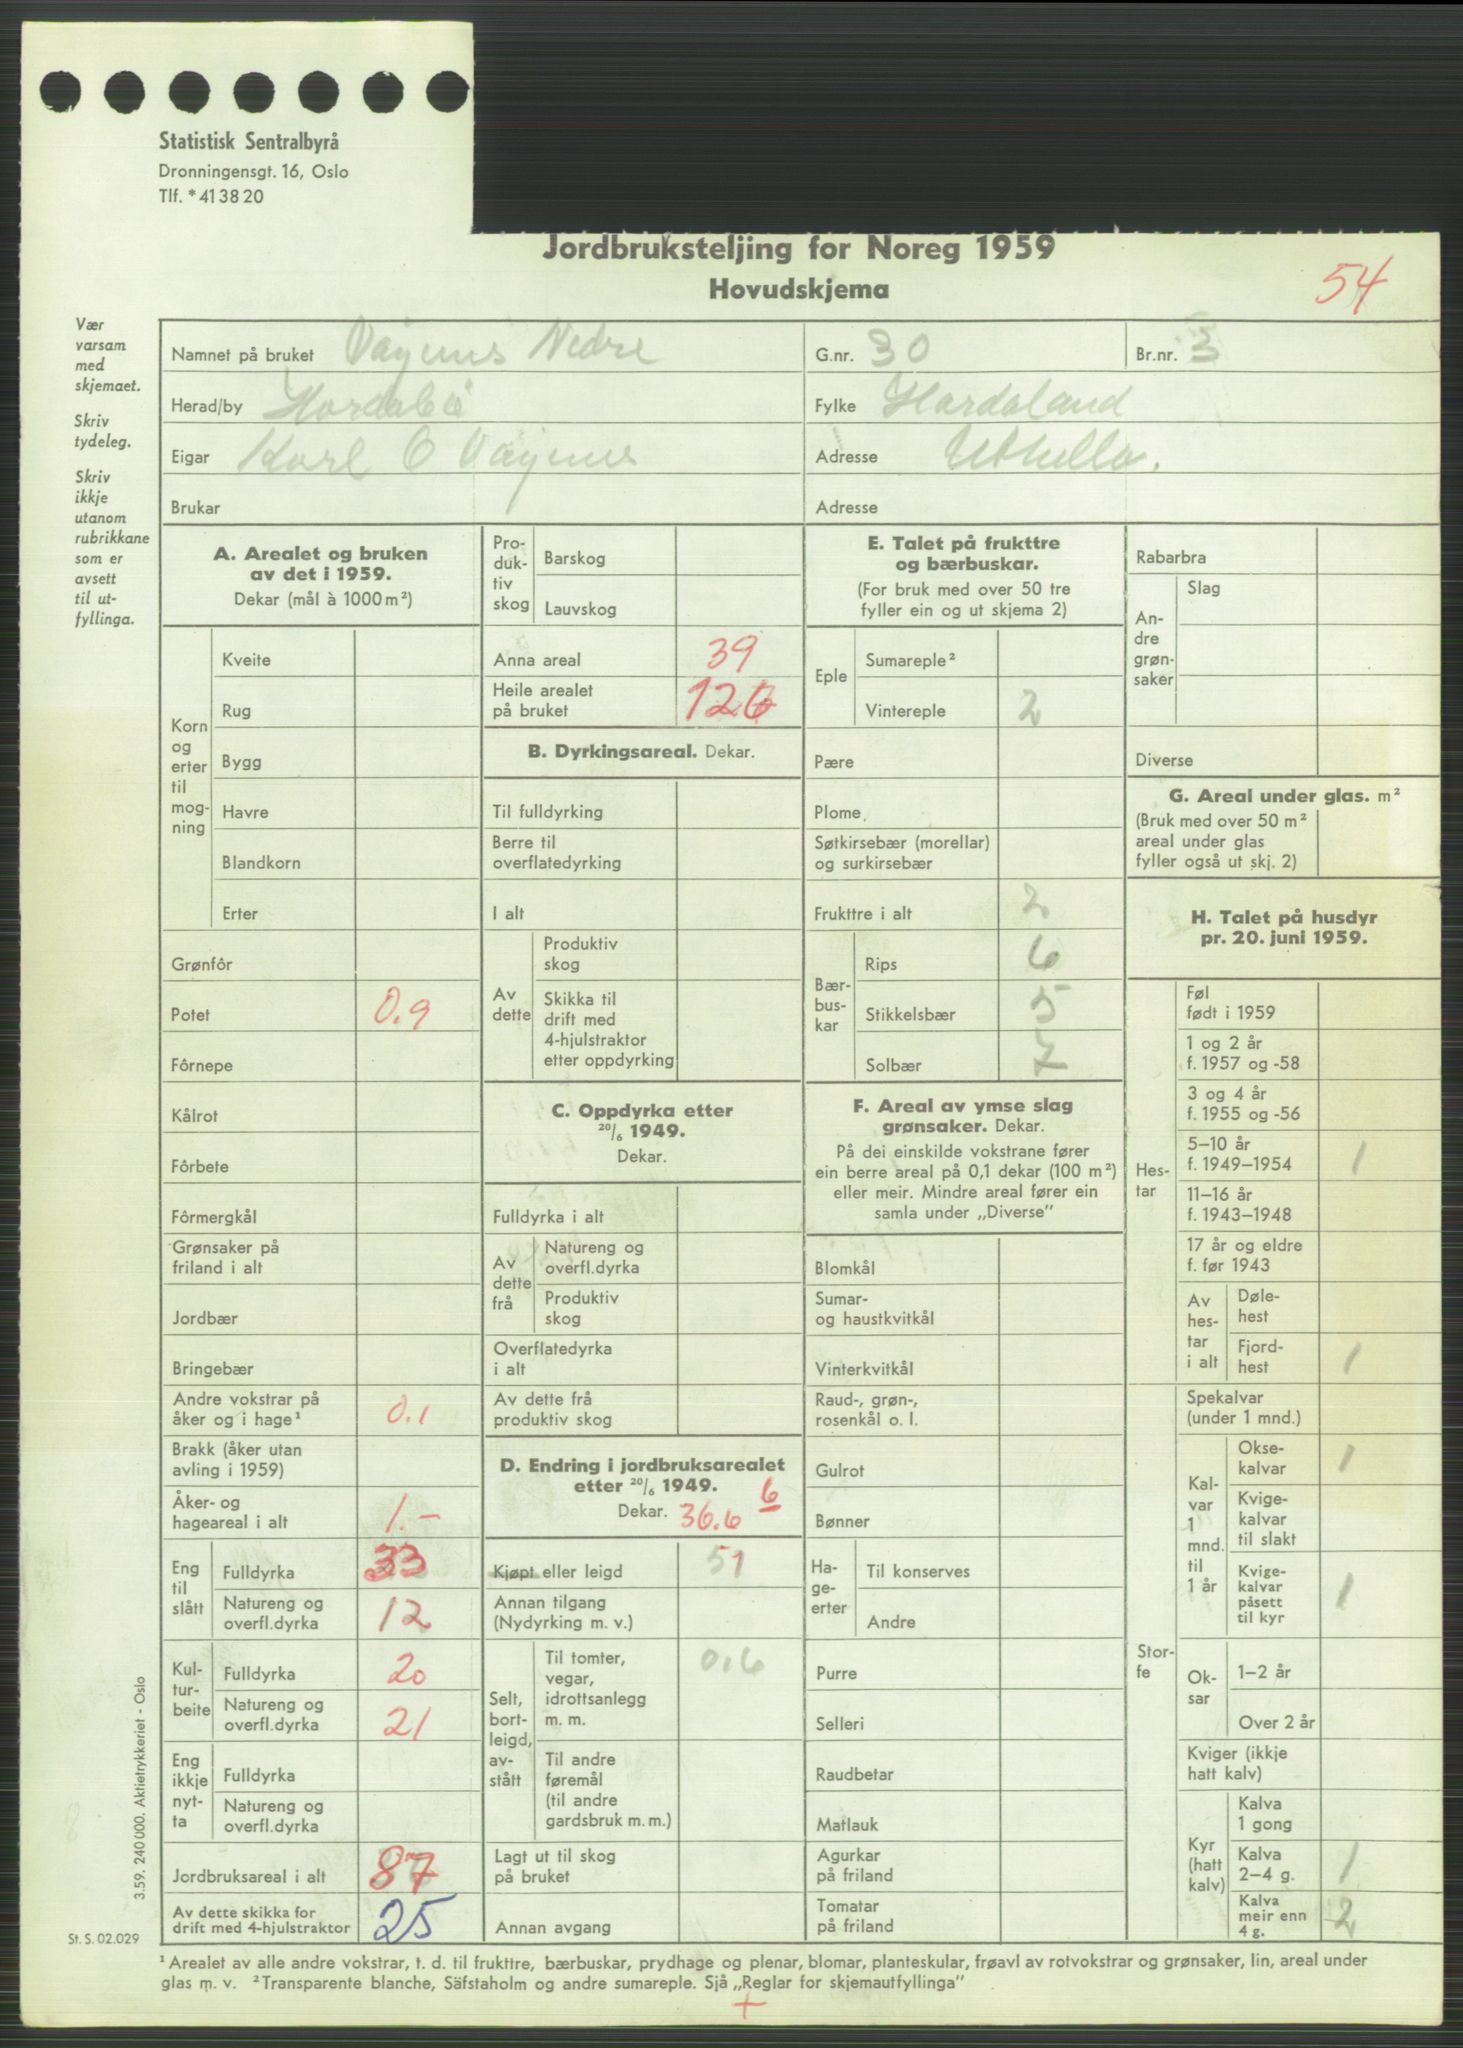 Statistisk Sentralbyrå
Dronningensgt. 16, Oslo
Tlf. * 41 38 20
Jordbruksteljing for Noreg 1959
Hovudskjema
54
Vær
varsam
med
skjemaet.
Skriv
tydeleg.
Skriv
ikkje
utanom
rubrikkane
som er
avsett
til ut-
fyllinga.
Namnet på bruket Vågenes Nedre
G.nr. 30
Br.nr. 3
Herad/by Hordabø
Fylke Hordaland
Eigar Karl O Vågenes
Adresse Uthella.
Brukar
Adresse
A. Arealet og bruken
av det i 1959.
Dekar (mål à 1000 m²)
Korn
og
erter
til
mog-
ning
Kveite
Rug
Bygg
Havre
Blandkorn
Erter
Grønfôr
Potet 0.9
Fôrnepe
Kålrot
Fôrbete
Fôrmergkål
Grønsaker på
friland i alt
Jordbær
Bringebær
Andre vokstrar på
åker og i hage¹ 0.1
Brakk (åker utan
avling i 1959)
Åker- og
hageareal i alt 1.-
Eng
til
slått
Fulldyrka 33
Natureng og
overfl.dyrka 12
Kul-
tur-
beite
Fulldyrka 20
Natureng og
overfl.dyrka 21
Eng
ikkje
nyt-
ta
Fulldyrka
Natureng og
overfl.dyrka
Jordbruksareal i alt 87
Av dette skikka for
drift med 4-hjulstraktor 25
Pro-
duk-
tiv
skog
Barskog
Lauvskog
Anna areal 39
Heile arealet
på bruket 126
B. Dyrkingsareal. Dekar.
Til fulldyrking
Berre til
overflatedyrking
I alt
Av
dette
Produktiv
skog
Skikka til
drift med
4-hjulstraktor
etter oppdyrking
C. Oppdyrka etter
20/6 1949.
Dekar.
Fulldyrka i alt
Av
dette
frå
Natureng og
overfl.dyrka
Produktiv
skog
Overflatedyrka
i alt
Av dette frå
produktiv skog
D. Endring i jordbruksarealet
etter 20/6 1949.
Dekar. 36.6 6
Kjøpt eller leigd 51
Annan tilgang
(Nydyrking m. v.)
Selt,
bort-
leigd,
av-
stått
Til tomter,
vegar,
idrottsanlegg
m. m. 0.6
Til andre
føremål
(til andre
gardsbruk m. m.)
Lagt ut til skog
på bruket
Annan avgang
E. Talet på frukttre
og bærbuskar.
(For bruk med over 50 tre
fyller ein og ut skjema 2)
Eple
Sumareple²
Vintereple 2
Pære
Plome
Søtkirsebær (morellar)
og surkirsebær
Frukttre i alt 2
Bær-
bus-
kar
Rips 6
Stikkelsbær 5
Solbær 7
F. Areal av ymse slag
grønsaker. Dekar.
På dei einskilde vokstrane fører
ein berre areal på 0,1 dekar (100 m²)
eller meir. Mindre areal fører ein
samla under „Diverse”
Blomkål
Sumar-
og haustkvitkål
Vinterkvitkål
Raud-, grøn-,
rosenkål o. l.
Gulrot
Bønner
Ha-
ge-
erter
Til konserves
Andre
Purre
Selleri
Raudbetar
Matlauk
Agurkar
på friland
Tomatar
på friland
Rabarbra
An-
dre
grøn-
saker
Slag
Diverse
G. Areal under glas. m²
(Bruk med over 50 m²
areal under glas
fyller også ut skj. 2)
H. Talet på husdyr
pr. 20. juni 1959.
Hes-
tar
Føl
født i 1959
1 og 2 år
f. 1957 og -58
3 og 4 år
f. 1955 og -56
5–10 år
f. 1949–1954 1
11–16 år
f. 1943–1948
17 år og eldre
f. før 1943
Av
hes-
tar
i alt
Døle-
hest
Fjord-
hest 1
Stor-
fe
Spekalvar
(under 1 mnd.)
Kal-
var
1
mnd.
til
1 år
Okse-
kalvar 1
Kvige-
kalvar
til slakt
Kvige-
kalvar
påsett
til kyr 1
Ok-
sar
1–2 år
Over 2 år
Kviger (ikkje
hatt kalv)
Kyr
(hatt
kalv)
Kalva
1 gong
Kalva
2–4 g. 1
Kalva
meir enn
4 g. 2
3.59. 240 000. Aktietrykkeriet - Oslo
St. S. 02.029
¹ Arealet av alle andre vokstrar, t. d. til frukttre, bærbuskar, prydhage og plenar, blomar, planteskular, frøavl av rotvokstrar og grønsaker, lin, areal under
glas m. v. ² Transparente blanche, Säfstaholm og andre sumareple. Sjå „Reglar for skjemautfyllinga”
+